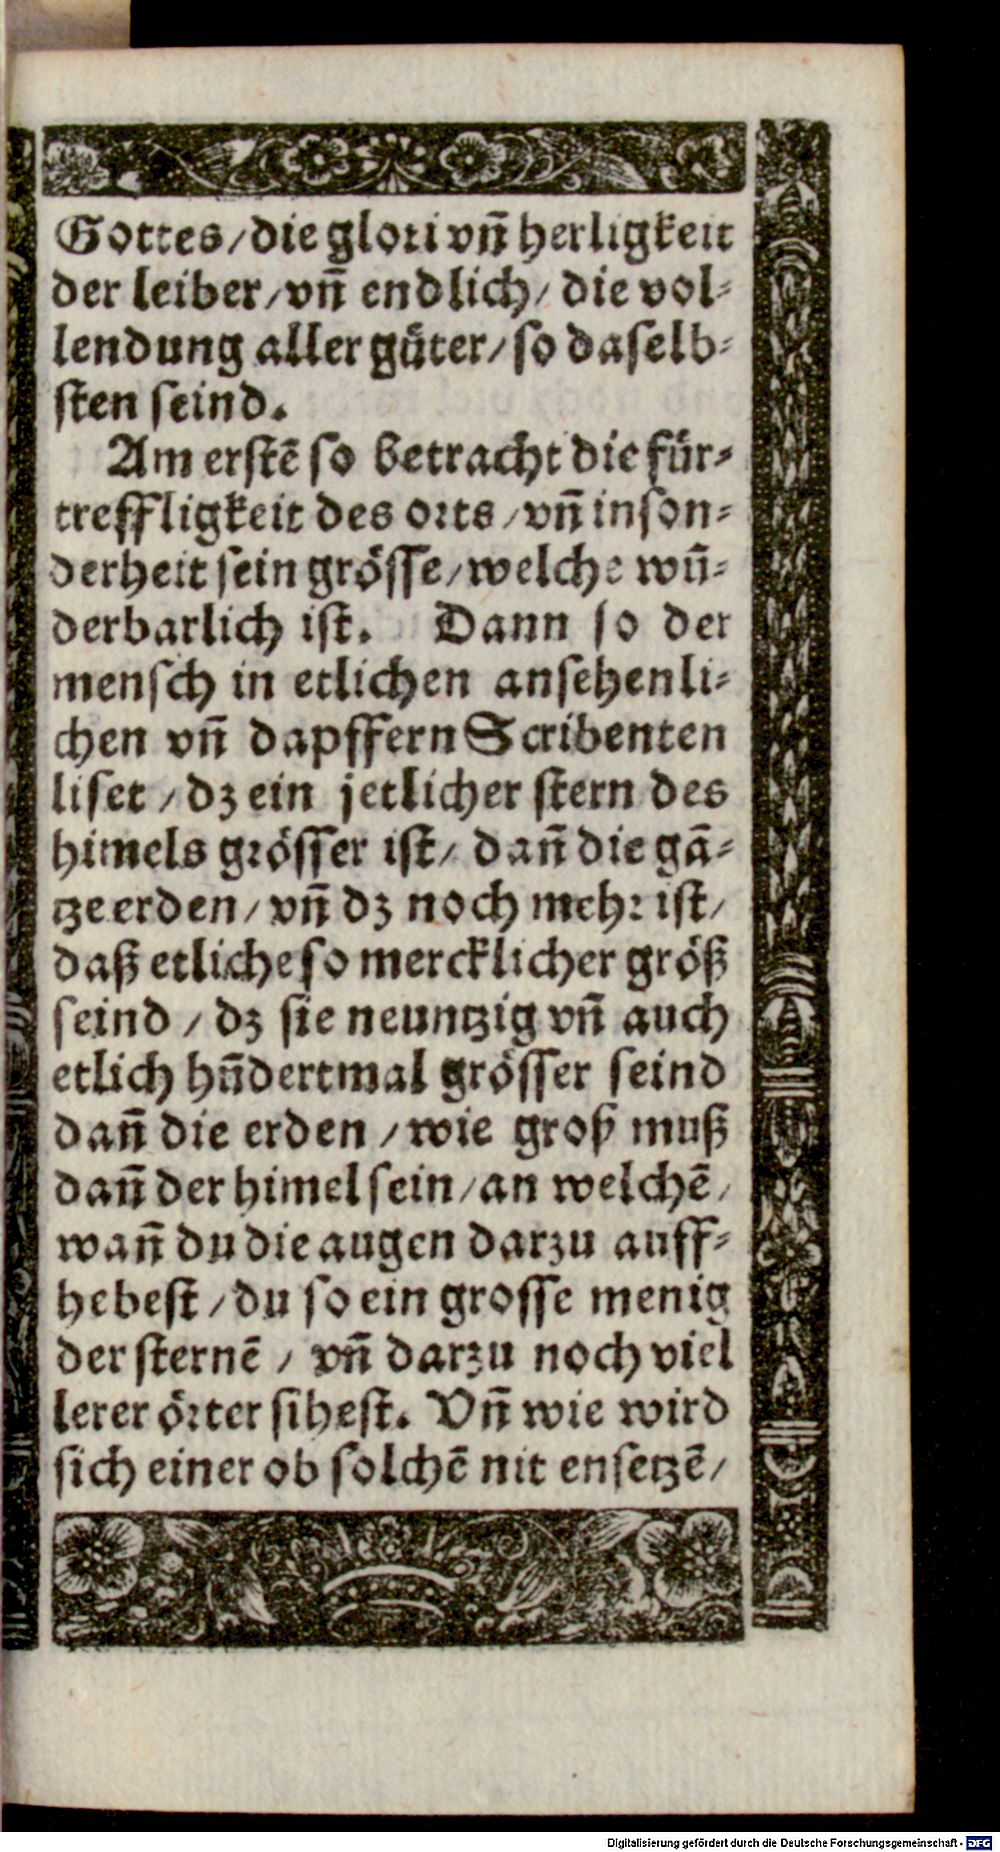 Gottes/die glori vñ herligkeit
der leiber/vñ endlich/die vol-
lendung aller güter/so daselb-
sten seind.
Am erstē so betracht die für-
treffligkeit des orts/vñ inson-
derheit sein grösse/welche wū-
derbarlich ist. Dann so der
mensch in etlichen ansehenli-
chen vñ dapffern Scribenten
liset/dz ein jetlicher stern des
himels grösser ist/dañ die gā-
tze erden/vñ dz noch mehr ist/
daß etliche so mercklicher größ
seind/dz sie neuntzig vñ auch
etlich hūdertmal grösser seind
dañ die erden/wie groß muß
dañ der himel sein/an welchē/
wañ du die augen darzu auff-
hebest/du so ein grosse menig
der sternē/vñ darzu noch viel
lerer örter sihest. Vñ wie wird
sich einer ob solchē nit ensetzē/
Digitalisierung gefördert durch die Deutsche Forschungsgemeinschaft - DFG